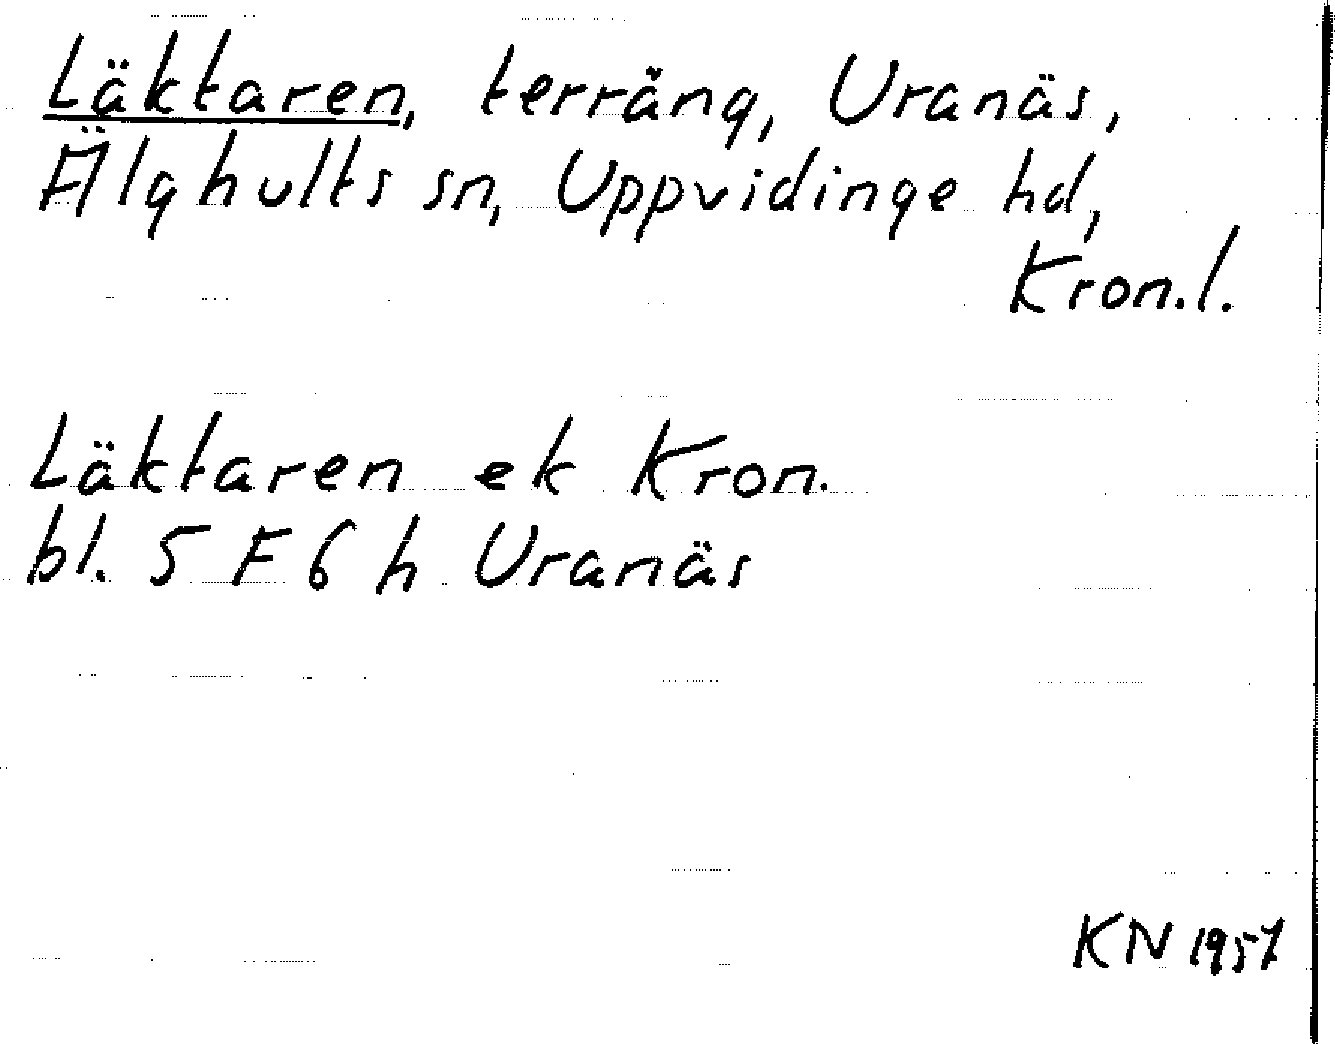 Läktaren, terräng, Uranäs,
Älghults sn, Uppvidinge hd,
Kron.l.
Läktaren ek Kron.
bl. 5 F 6 h Uranäs
KN 1957